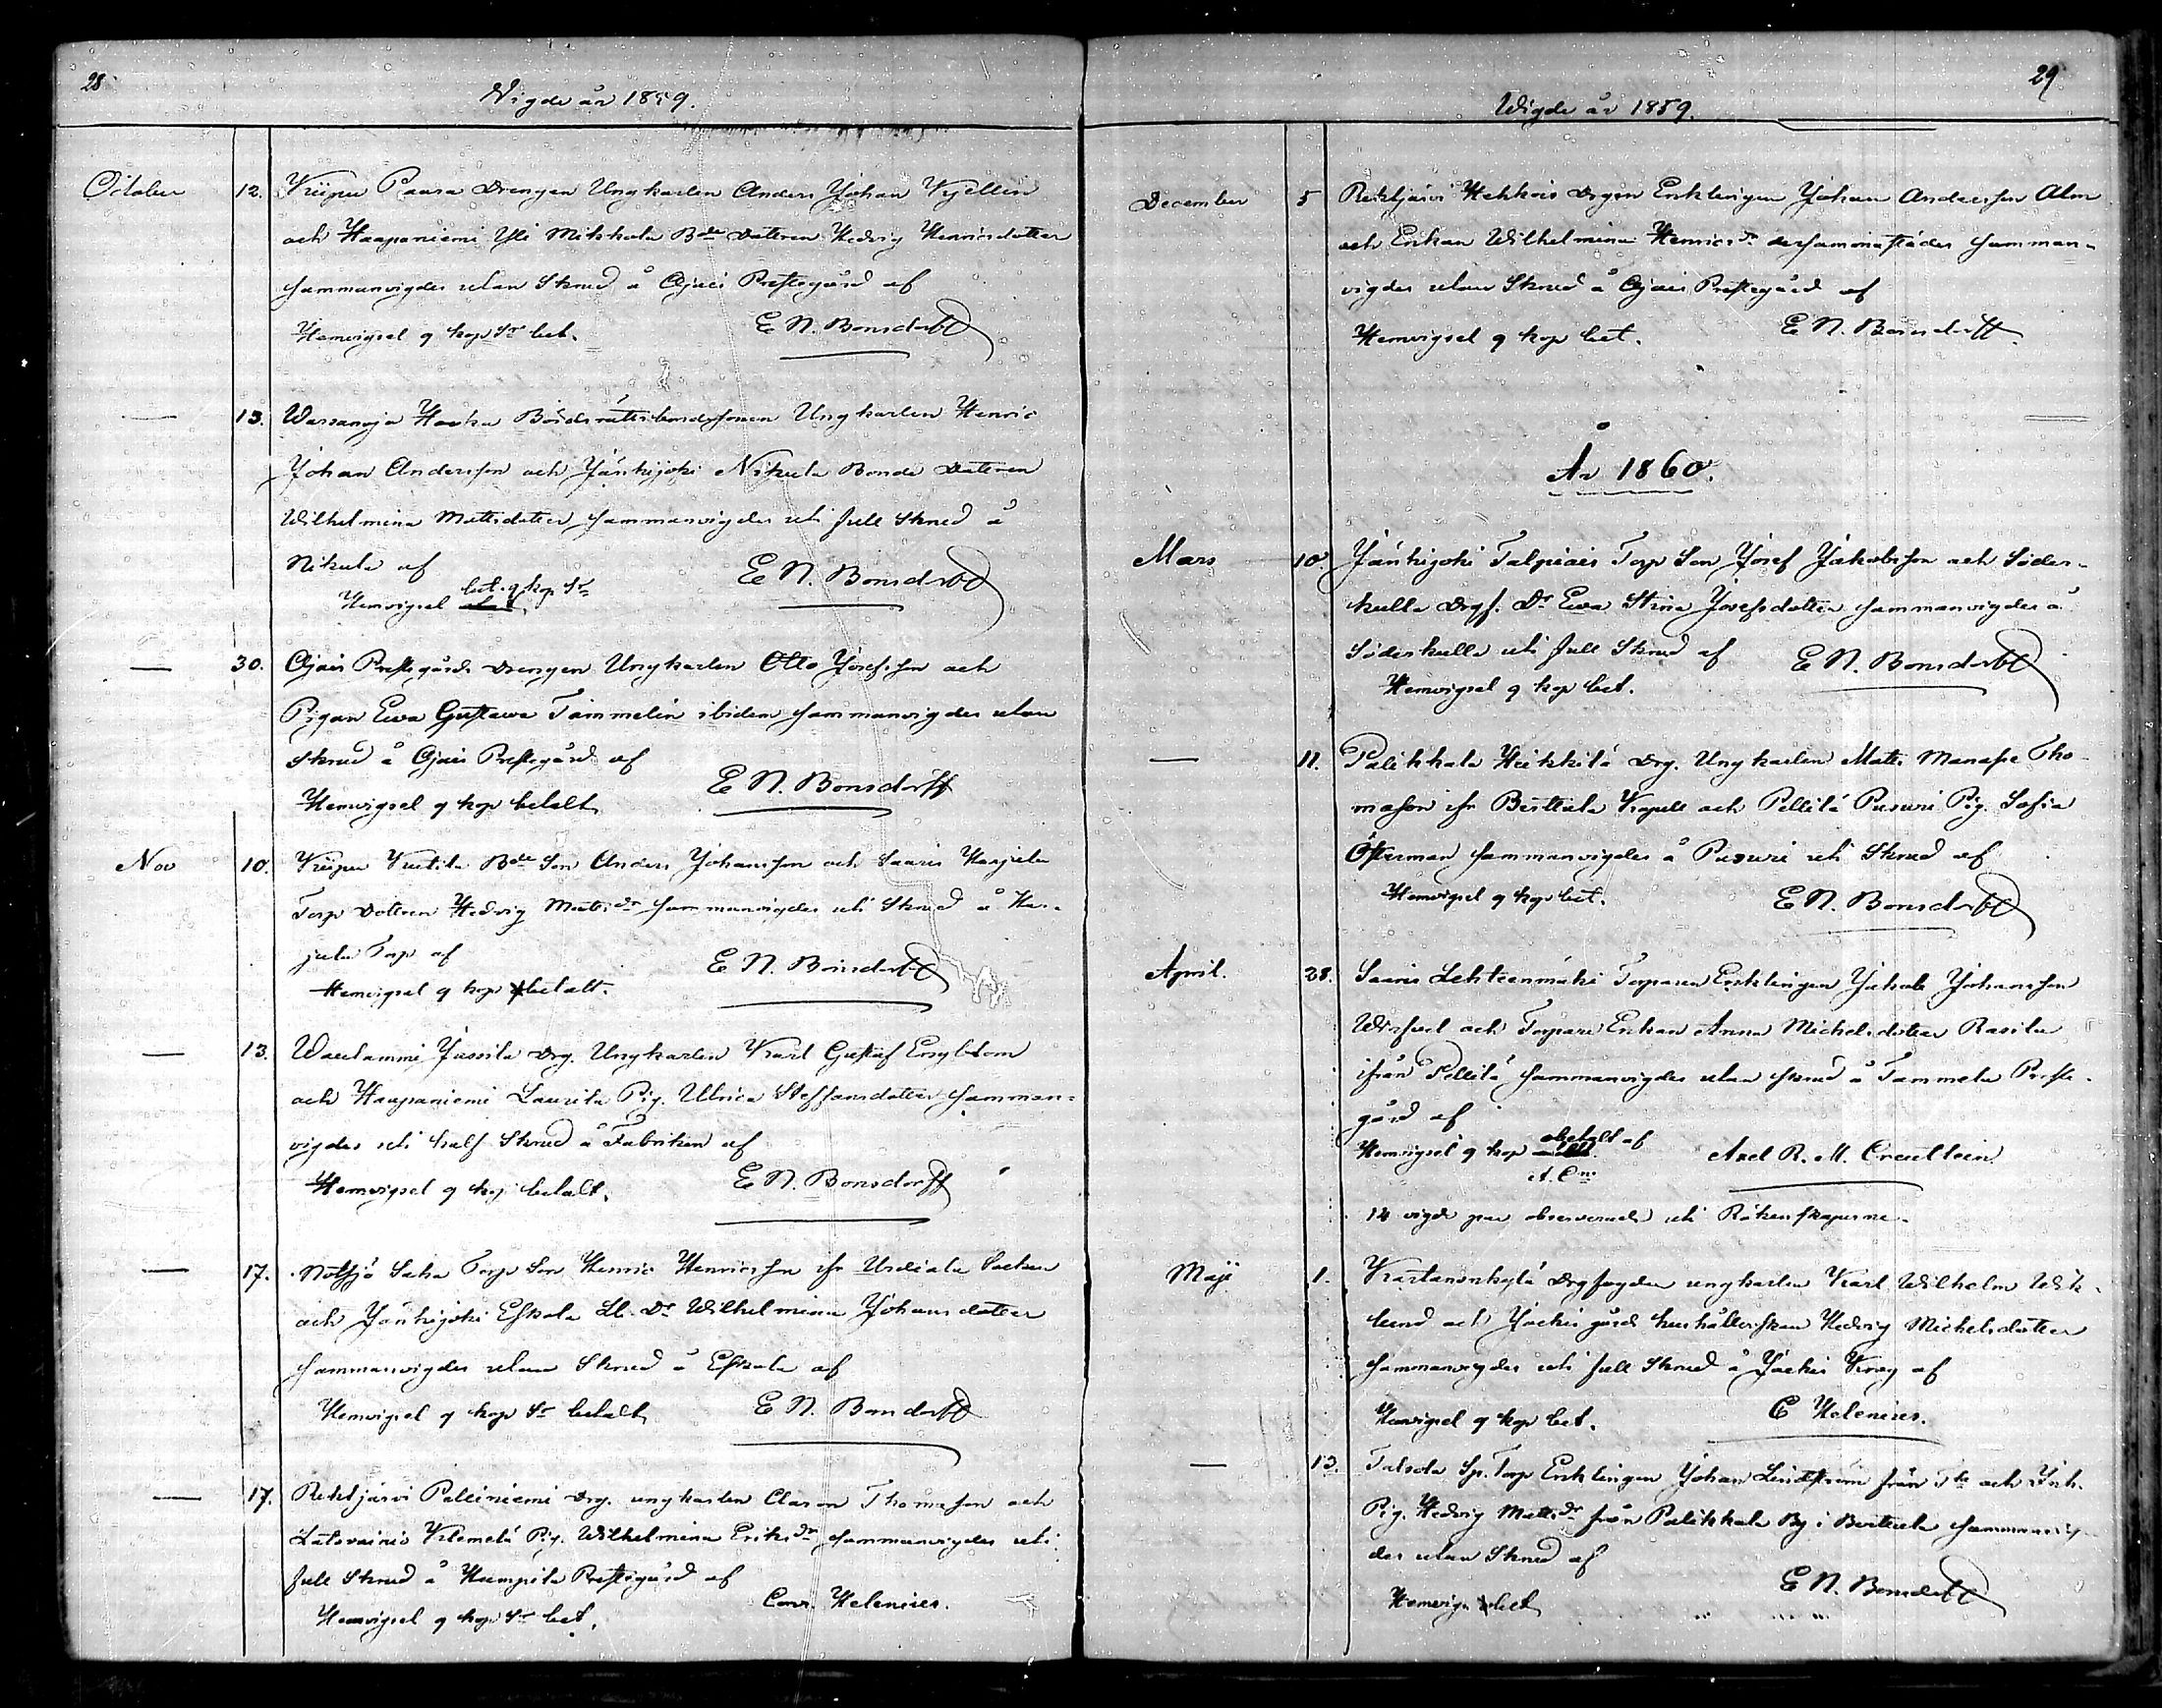 28
Wigde år 1859.
October 12. Kiipu Paara Drengen Ungkarlen Anders Johan Kjellin
och Haapaniemi Yli Mikkola Bde Dottren Hedvig Henricsdotter
sammanvigdes utan Skrud å Ojais Prestegård af
Hemvigsel q kop Sr bet. E N. Bonsdorff
— 13. Warsanoja Bondesonen Ungkarlen Henric
Johan Andersson och Jänhijoki Nikula Bonde Dottren
Wilhelmina Mattsdotter sammanvigdes uti full Skrud å
Nikula af E N. Bonsdorff
Hemvigsel bet. q kop Sr
— 30. Ojais Prestegårds Drengen Ungkarlen Otto Josefsson och
Pigan Ewa Gustawa Tammelin ibidem sammanvigdes utan
Skrud å Ojais Prestegård af
Hemvigsel q kop betalt E N. Bonsdorff
Nov 10. Kiipu Kutila Bde Son Anders Johansson och Saaris Harjula
Torp Dottren Hedvig Matts dr sammanvigdes uti Skrud å Har-
jula Torp af E N. Bonsdorff
Hemvigsel q kop betalt.
— 13. Waulammi Jussila Drg. Ungkarlen Karl Gustaf Engblom
och Haapaniemi Laurila Pig. Ulrica Steffansdotter samman-
vigdes uti half Skrud å Fabriken af
Hemvigsel q kop betalt. E N. Bonsdorff
— 17. Notsjö Saha Torp Son Henric Henricsson ifr Urdiala Socken
och Jänhijoki Eskola Ll. Dr Wilhelmina Johansdotter
sammanvigdes utan Skrud å Eskola af
Hemvigsel q kop Sr betalt E N. Bonsdorff
— 17. Rehtijärvi Paliniemi Drg. ungkarlen Clas Thomasson och
Latovainio Klemelä Pig. Wilhelmina Eriks dr sammanvigdes uti
full Skrud å Humpila Prestegård af
Hemvigsel q kop Sr bet. Conr. Helenius.
29
Wigde år 1859.
December 5 Rehtijärvi Hehkois Drgen Enklingen Johan Andersson Alm
och Enkan Wilhelmina Henrics dr dersammastädes samman-
vigdes utan Skrud å Ojais Prestegård af
Hemvigsel q kop bet. E N. Bonsdorff.
År 1860.
Mars 10 Jänhijoki Talpiais Torp Son Josef Jakobsson och Söder-
kulla Drgs. Dr Ewa Stina Josefsdotter sammanvigdes å
Söderkulla uti full Skrud af E N. Bonsdorff
Hemvigsel q kop bet.
— 11. Palikkala Heikkilä Drg. Ungkarlen Matts Manasse Tho-
masson ifr Bertteula Kapell och Pellilä Pusuri Pig. Sofia
Österman sammanvigdes å Pusuri uti Skrud af
Hemvigsel q kop bet. E N. Bonsdorff
April. 28. Saaris Lehteenmäki Torparen Enklingen Jakob Johansson
och Torpare Enkan Anna Michelsdotter Rasila
ifrån Pellilä sammanvigdes utan skrud å Tammela Preste-
gård af
Hemvigsel q kop obetalt af Axel R. M. Creutlein
A. Cn
14 vigde par observerade uti Räkenskaperne.
Maji 1. Kartanonkylä Drgfogden ungkarlen Karl Wilhelm Wik-
lund och Jockis gårds hushållerskan Hedvig Michelsdotter
sammanvigdes uti full Skrud å Jockis Krog af
Hemvigsel q kop bet. C Helenius.
— 13. Talsola Sp. Torp Enklingen Johan Lindström från och Inh.
Pig. Hedvig Matts dr från Palikkala By i Bertteula sammanvig-
des utan Skrud af
Hemvigs bet E N. Bonsdorff